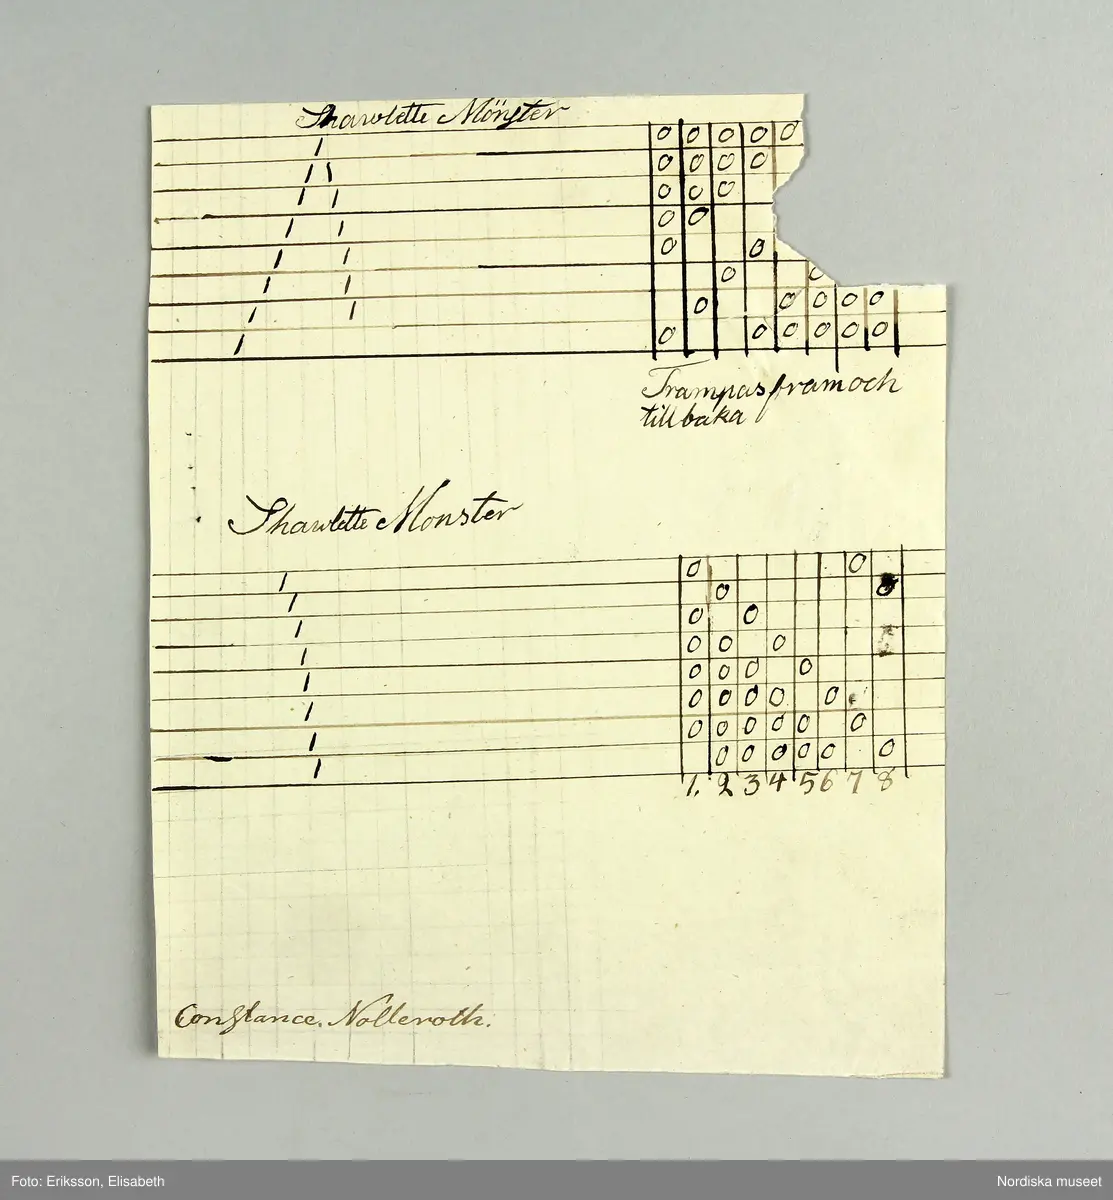 Shawlette Mönster
O O O O O
O O O O
O O O
O O
O O
O O
O O O O O
O O O O O O
Trampas fram och
till baka
Shawlette Monster
O O
O O
O O
O O O
O O O O
O O O O O O
O O O O O O
O O O O O O
1. 2 3 4 5 6 7 8
Constance. Nolleroth.
Foto: Eriksson, Elisabeth
Nordiska museet